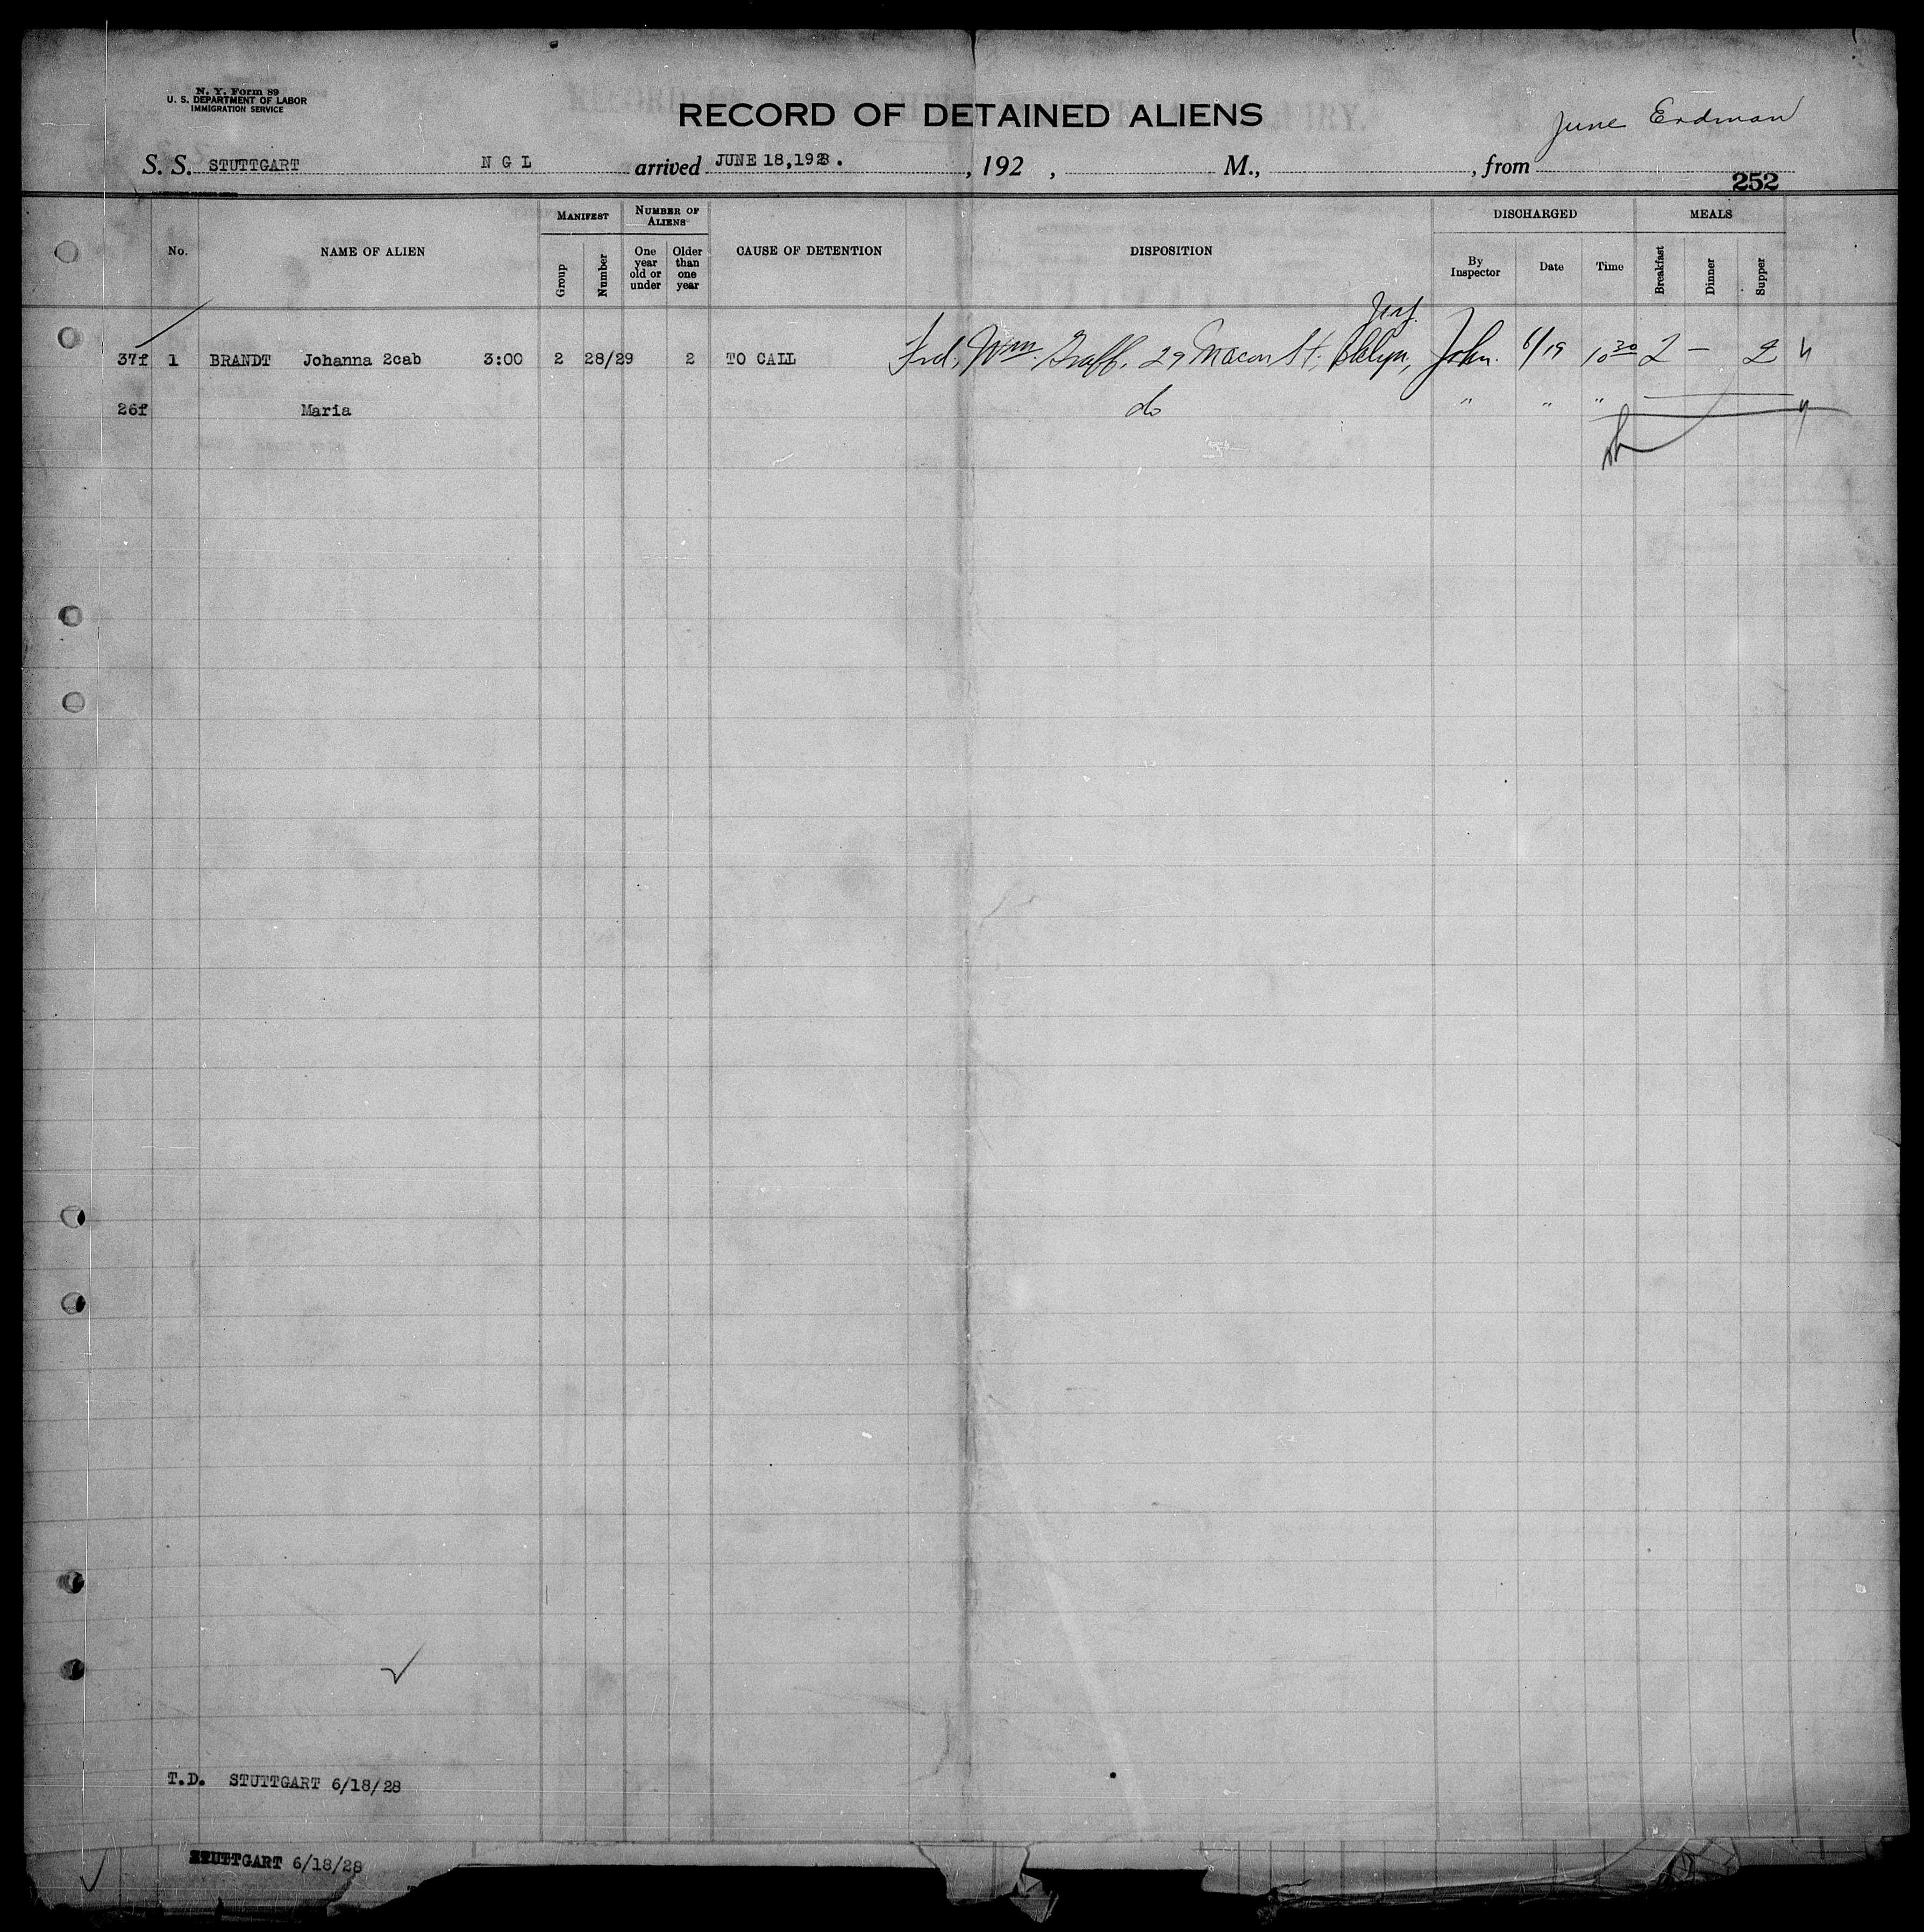 N. Y. Form 89
U. S. DEPARTMENT OF LABOR
IMMIGRATION SERVICE
RECORD OF DETAINED ALIENS
June Erdman
S. S. STUTTGART N G L arrived JUNE 18,1928. , 192 , M., , from
252
No. NAME OF ALIEN MANIFEST Group Number NUMBER OF ALIENS One year old or under Older than one year CAUSE OF DETENTION DISPOSITION DISCHARGED By Inspector Date Time MEALS Breakfast Dinner Supper
37f 1 BRANDT Johanna 2cab 3:00 2 28/29 2 TO CALL Frd. Wm. Graff, 29 Macon St. Bklyn, John. 6/19 10 30 2 — 2
26f Maria do " " "
T.D. STUTTGART 6/18/28
STUTTGART 6/18/28